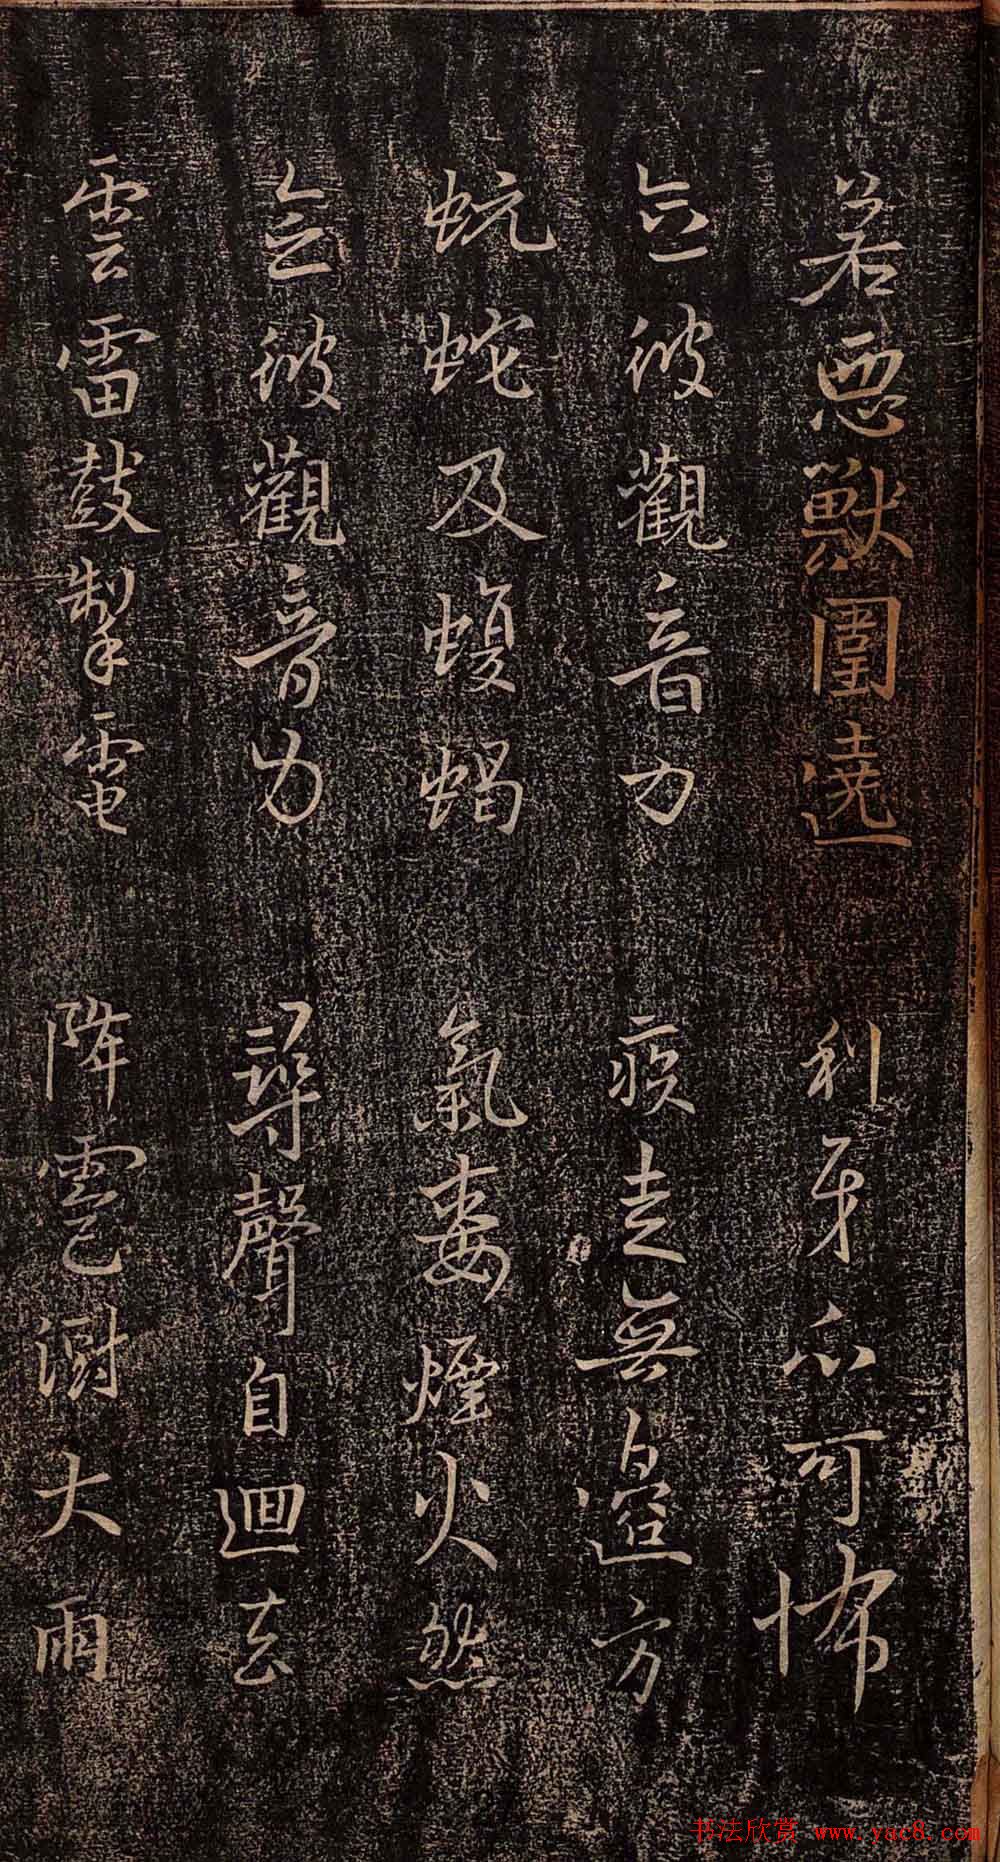 若惡獸圍遶 利牙爪可怖
念彼觀音力 疾走無邊方
蚖蛇及蝮蝎 氣毒煙火然
念彼觀音力 尋聲自迴去
雲雷鼓掣電 降雹澍大雨
书法欣赏 www.yac8.com